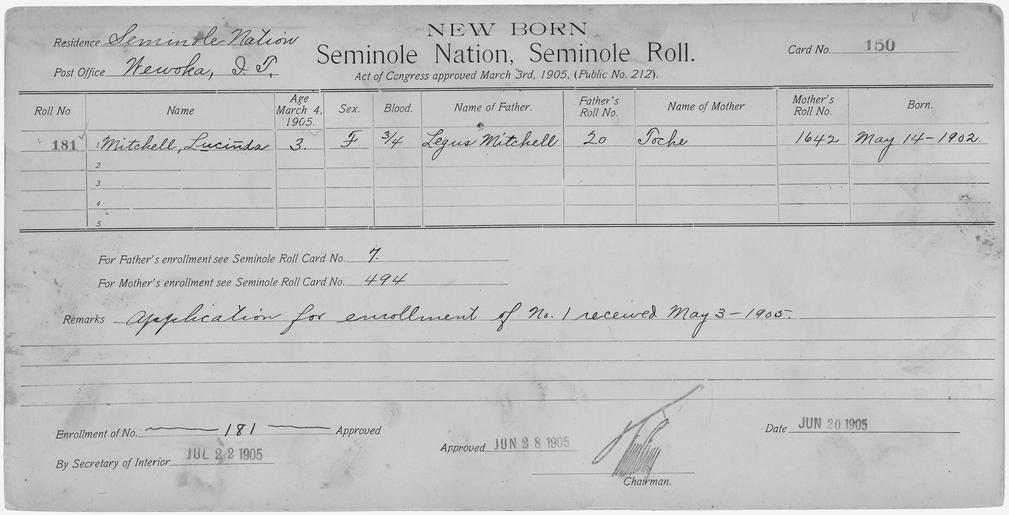 NEW BORN
Residence Seminole Nation
Seminole Nation, Seminole Roll.
Card No. 150
Post Office Wewoka, I. T.
Act of Congress approved March 3rd, 1905, (Public No. 212).
Roll No Name Age March 4, 1905. Sex. Blood. Name of Father. Father's Roll No. Name of Mother Mother's Roll No. Born.
181 1 Mitchell, Lucinda 3. F 3/4 Legus Mitchell 20 Toche 1642 May 14-1902.
2
3
4
5
For Father's enrollment see Seminole Roll Card No. 7.
For Mother's enrollment see Seminole Roll Card No. 494
Remarks Application for enrollment of No. 1 received May 3-1905.
Enrollment of No. 181 Approved
Date JUN 20 1905
Approved JUN 28 1905
By Secretary of Interior JUL 22 1905
Chairman.